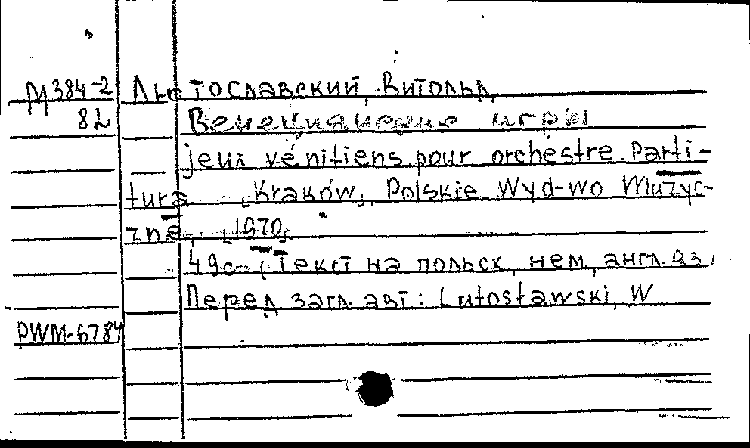 М384-2 Лютославский, Витольд.
82 Венецианские игры
jeux vénitiens pour orchestre. Parti-
tura [Kraków], Polskie Wyd-wo Muzycz-
zne, [1970].
49 с. (Текст на польск., нем., англ. яз.
Перед загл. авт.: Lutosławski, W
PWM-6784